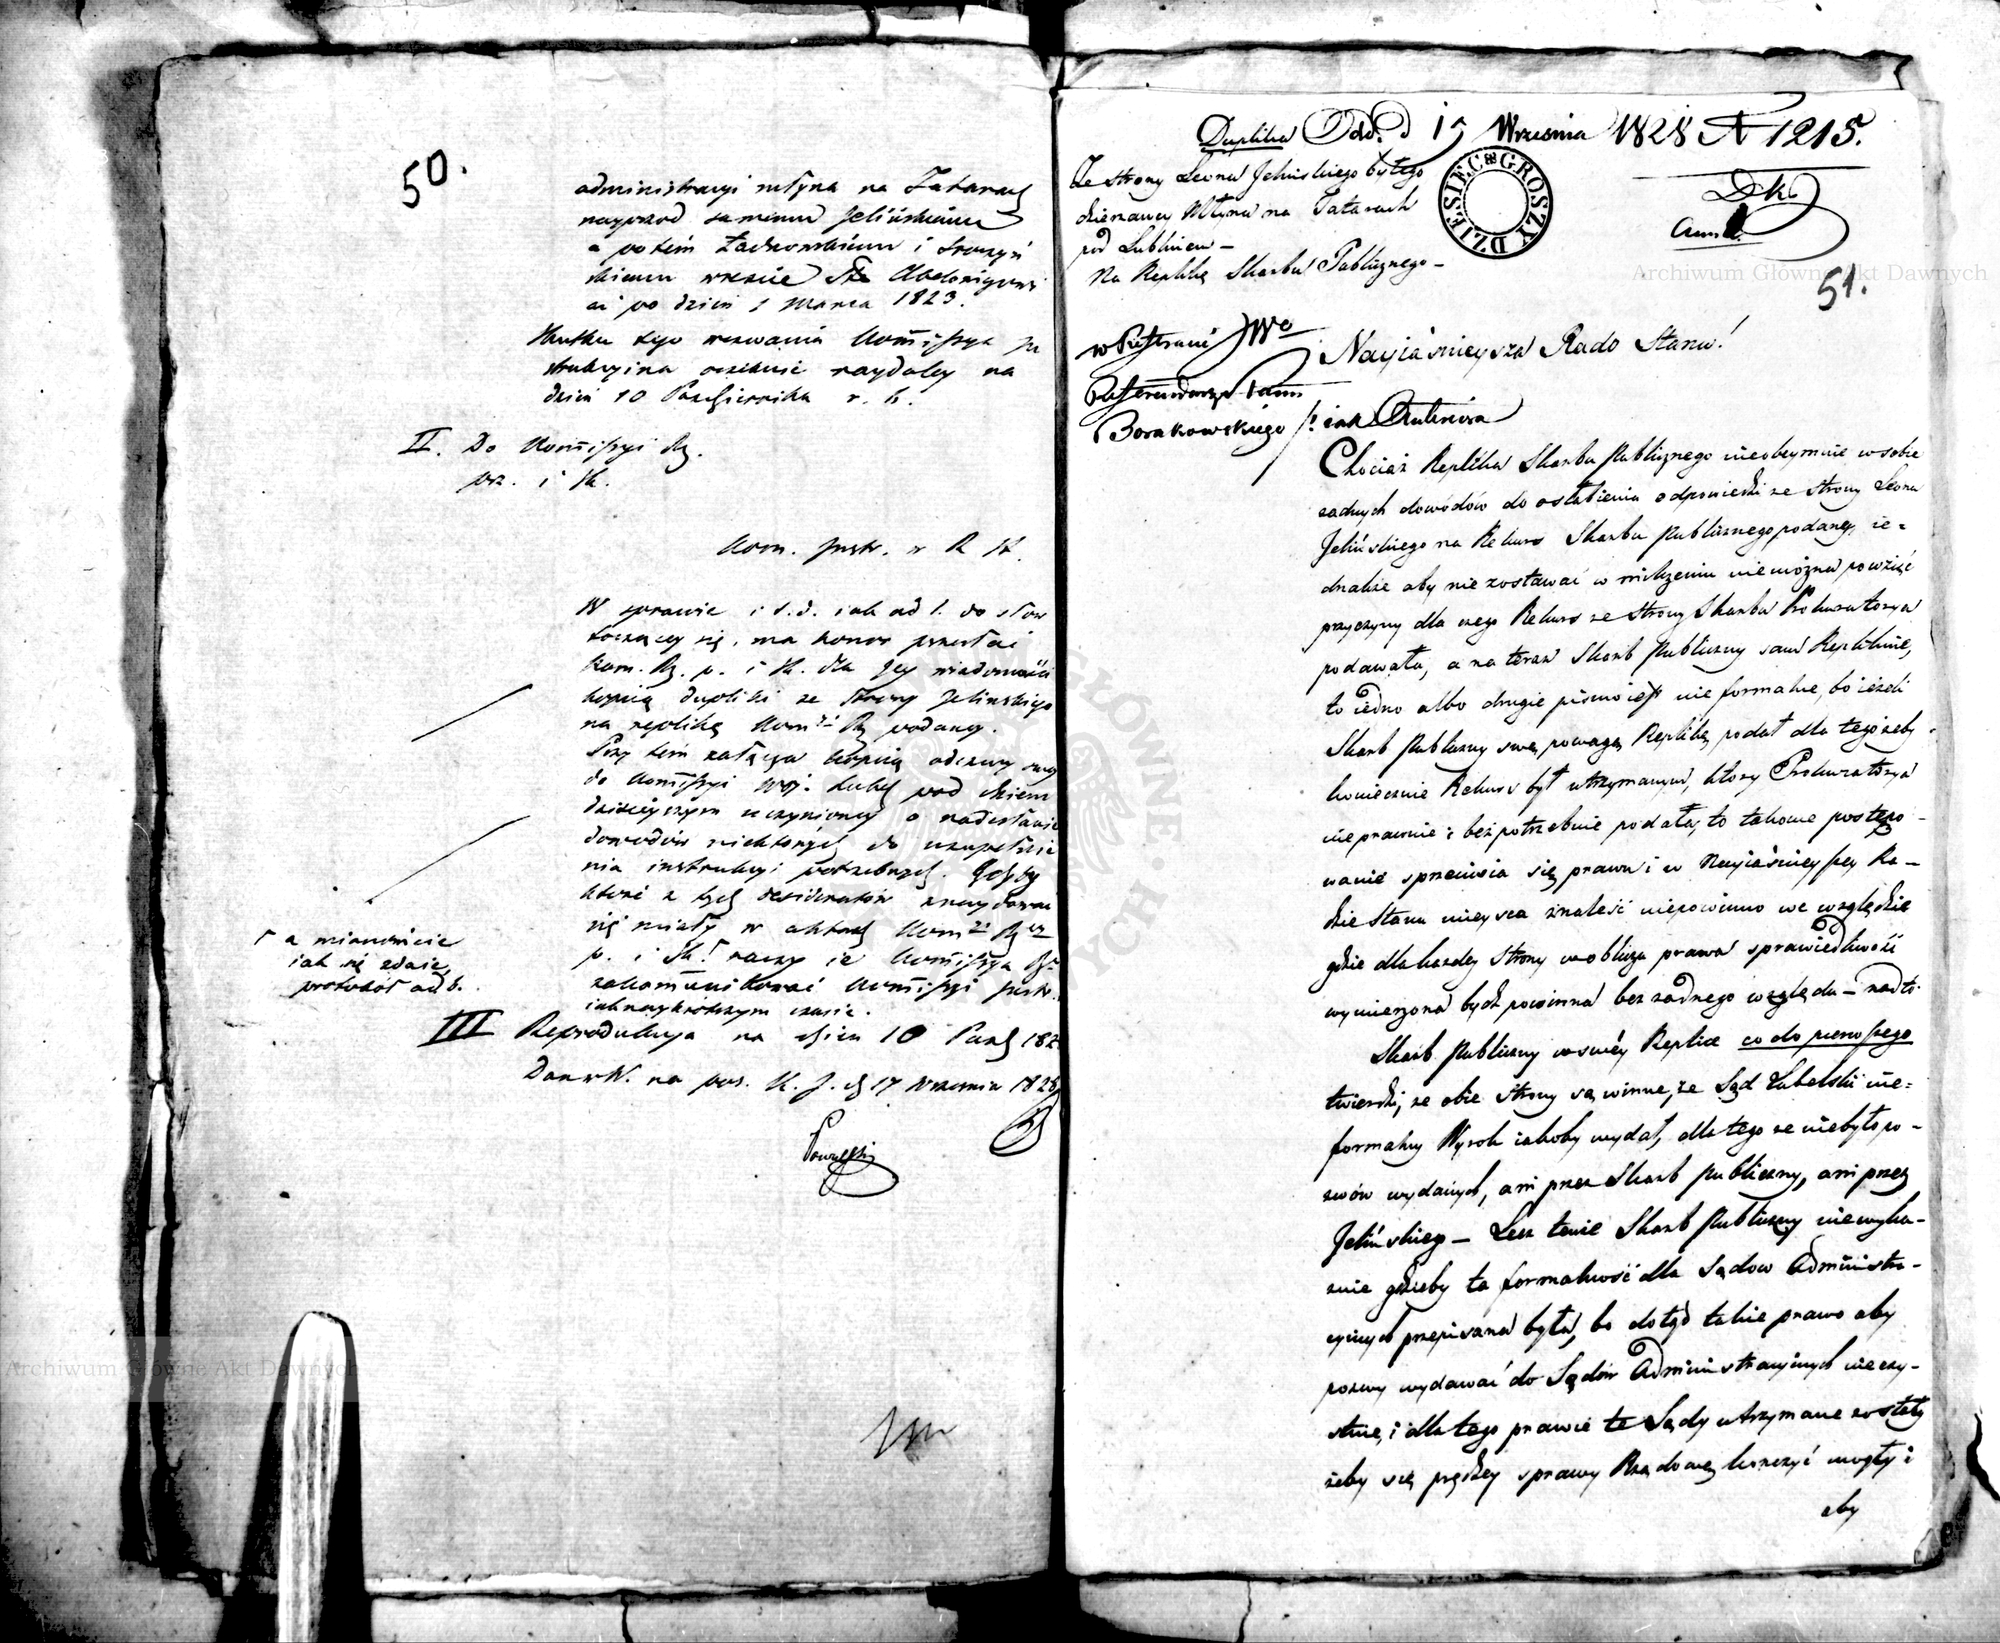 50.
administracyi młyna na Tatarach
naprzod samemu Jelińskiemu
a potém Żachowskiemu i
skiemu wreście
aż po dzień 1 Marca 1823.
Skutku tego wezwania Kommissya In
strukcyina oczekuie naydaley na
dzień 10 Października r. b.
II. Do Kommissyi Rz.
prz. i Sk.
Kom. Instr. w R. St.
W sprawie i t. d. iak ad 1. do słów
toczącey się, ma honor przesłać
Kom. Rz. p. i Sk. dla Jey wiadomości
kopią dupliki ze strony Jelinskiego
na replikę Kommi Rz podaney.
Przy tém załącza kopią odezwy swey
do Kommissyi Woj. Lubel pod dniem
dzisieyszym uczynioney o nadesłanie
dowodów niektórych do uzupełnie
nia instrukcyi potrzebnych. Gdyby
któré z tych desideratów znaydować
się miały w aktach Kommi Rz
p. i Sk. raczy ie Kommissya Rz.
zakommunikować Kommissyi Instr.
iak naykrótszym czasie.
Γ a mianowicie
iak się zdaie,
protokół ad b.
III Reprodukcya na dzień 10 Paźd 182
Dan w W. na pos. K. J. d 17 Września 1828
Duplika Odd. d 15 Września 1828 N 1215.
Ze strony Leona Jelinskiego byłego
dzierzawcy Młyna na Tatarach
pod Lublinem -
Na Replikę Skarbu Publicznego -
DZIESIĘC GROSZY
51.
w Przytomności JWo
Referendarza Stanu
Borakowskiego
Nayiaśnieysza Rado Stanu!
Chociaż Replika Skarbu Publicznego nieobeymuie w sobie
żadnych dowódów do osłabienia odpowiedzi ze strony Leona
Jelińskiego na Rekurs Skarbu Publicznego podaney, ie=
dnakże aby nie zostawać w milczeniu niemożna powziąść
przyczyny dla czego Rekurs ze strony Skarbu Prokuratorya
podawała, a na teraz Skarb Publiczny sam Replikuie,
to iedno albo drugie pismo iest nie formalne, bo ieżeli
Skarb Publiczny swą powagą Replikę podał dla tego żeby
koniecznie Rekurs był utrzymanym, który Prokuratorya
nieprawnie i bezpotrzebnie podała, to takowe postępo-
wanie sprzeciwia się prawu i w Nayiaśnieyszey Ra-
dzie Stanu mieysca znaleść niepowinno we względzie
gdzie dla każdey strony w obliczu prawa sprawiedliwość
wymierzona bydź powinna bez żadnego względu - nadto
Skarb Publiczny w swéy Replice co do pierwszego
twierdzi, że obie strony są winne, że Sąd Lubelski nie=
formalny Wyrok iakoby wydał, dla tego że niebyło po-
zwów wydanych, ani przez Skarb Publiczny, ani przez
Jelińskiego - Lecz tenże Skarb Publiczny niewyka-
zuie gdzieby ta formalność dla Sądow Administra-
cyinych przepisana była, bo dotąd takie prawo aby
pozwy wydawać do Sądów Administracyinych nieexy-
stuie, i dla tego prawie te Sądy utrzymane zostały
żeby się prędzey sprawy Rządowe kończyć mogły i
aby
Archiwum Główne Akt Dawnych
Archiwum Główne Akt Dawnych